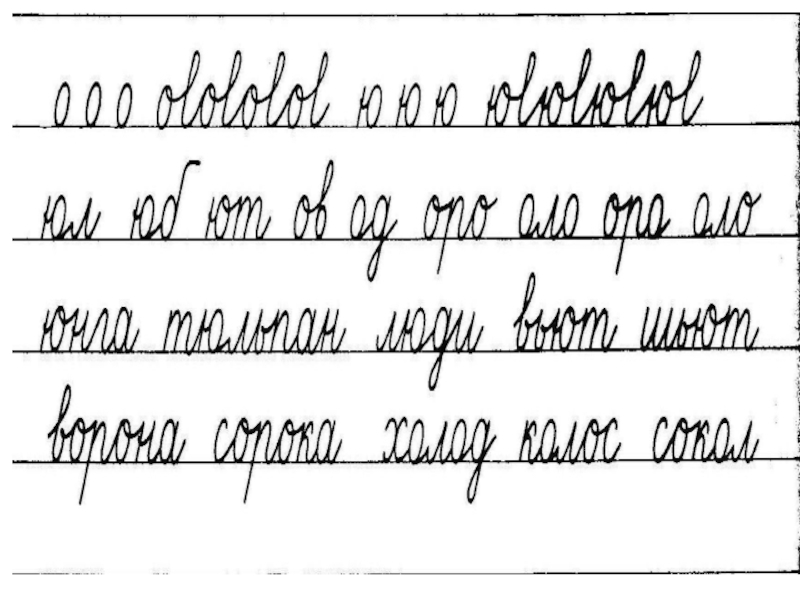 о о о ововововов ю ю ю ювювювюв
юл юб ют ов од оро оло ора оло
юнга тюльпан люди вьют шьют
ворона сорока холод колос сокол